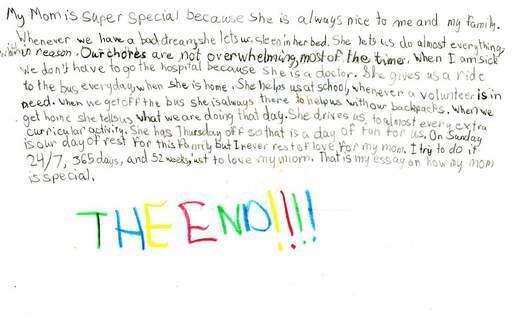 My Mom is super special because she is always nice to me and my family.
Whenever we have a bad dream, she lets us sleep in her bed. She lets us do almost everything,
within reason. Our chores are not overwhelming, most of the time. When I am sick
we don't have to go the hospital because she is a doctor. She gives us a ride
to the bus everyday, when she is home. She helps us at school, whenever a volunteer is in
need. When we get off the bus she is always there to help us with our backpacks. When we
get home she tells us what we are doing that day. She drives us, to almost every extra
curricular activity. She has Thursday off so that is a day of fun for us. On Sunday
is our day of rest for this family but I never rest of love for my mom. I try to do it
24/7, 365 days, and 52 weeks, just to love my mom. That is my essay on how my mom
is special.
THE END!!!!